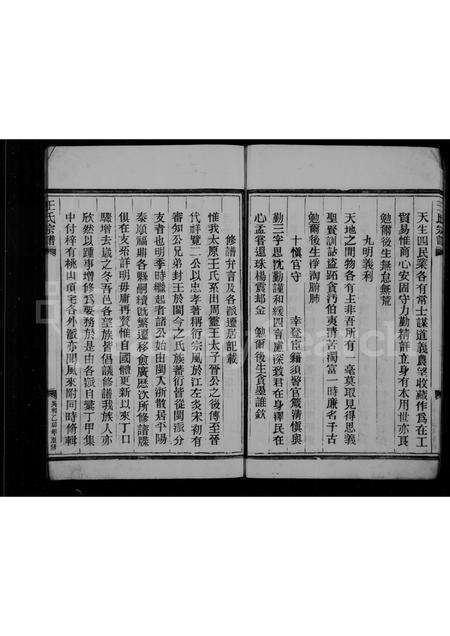 王氏宗譜
天生四民業各有常士謀道義農望收藏作爲在工
貿易惟商心安固守力勤精詳立身有本用世亦良
勉爾後生無怠無荒
九明義利
天地之間物各有主非吾所有一毫莫取見得思義
聖賢訓誌盜跖貪汚伯夷清苦濁富一時廉名千古
勉爾後生淨洵腑肺
十愼官守
幸登臣籍須警官箴清愼與
勤三字思忱勤謹和緩四音慮深致君在身澤民在
心孟嘗還珠楊震郤金
勉爾後生貪墨誰欽
修譜弁言及各派遷居記載
惟我太原王氏系出周靈王太子晉公之後傳至晉
代祥覽二公以忠孝著稱衍宗風於江左炎宋初有
審知公兄弟封王於閩今之氏族蕃衍皆從閩派分
支者也明季時繼起者諸公始由閩入浙散居平陽
泰順福鼎各縣嗣續旣繁遷移愈廣歷次所修譜牒
俱在支菀詳明毋庸再贅惟自國體更新以來丁口
驟增去歲之冬吾邑各望族皆倡議修譜我族人亦
欣然以踵事增修爲要務於是由各嶽自彙丁甲集
中付梓有桃山項宅各外派亦聞風來附同時脩輯
王氏宗譜